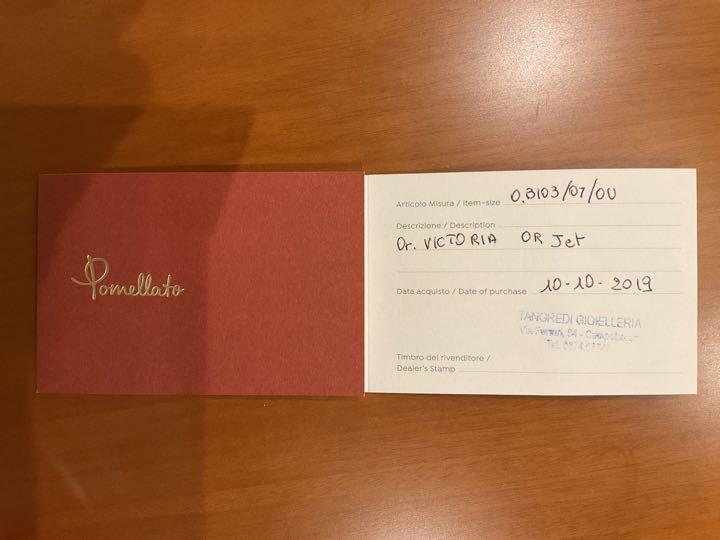 Pomellato
Articolo Misura / Item-size O.B103/07/OU
Descrizione / Description
Or. VICTORIA OR Jet
Data acquisto / Date of purchase 10-10-2019
TANGREDI GIOIELLERIA
Via Ferrari, 84 -
Tel.
Timbro del rivenditore /
Dealer's Stamp